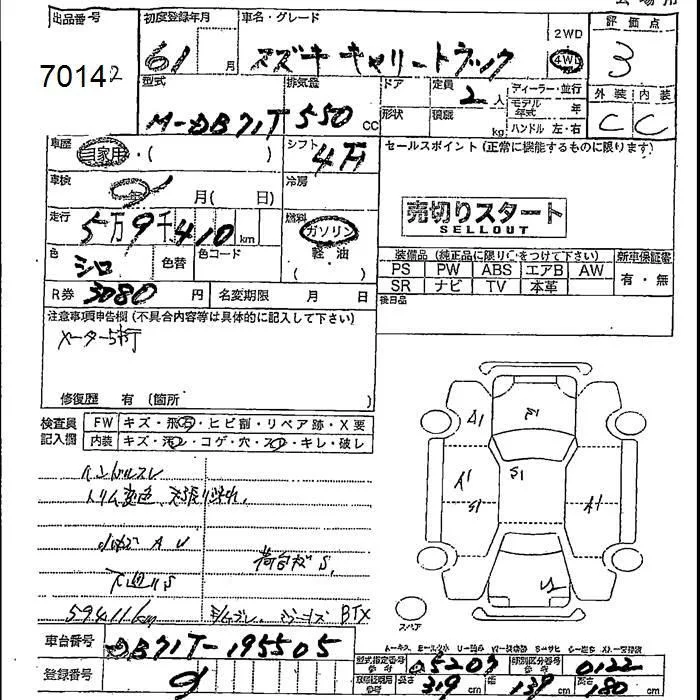 会場用
出品番号
70142
初度登録年月
61 月
車名・グレード
スズキ キャリートラック
2WD
4WD
評価点
3
外装 内装
C C
型式
M-DB71T
排気量
550 CC
ドア
形状
定員
2人
積載
kg
ディーラー・並行
モデル年式 年
ハンドル 左・右
車歴
自家用・( )
シフト
4万
セールスポイント(正常に機能するものに限ります)
車検
年 月( 日)
冷房
売切りスタート
SELLOUT
走行
5万9千410km
燃料
ガソリン
軽・油
( )
色
シロ
色替
色コード
装備品(純正品に限り○をつけて下さい)
新車保証書
PS PW ABS エアB AW
SR ナビ TV 本革
有・無
後日品
R券 3080円
名変期限 月 日
注意事項申告欄(不具合内容等は具体的に記入して下さい)
メーター5桁
修復歴 有(箇所
検査員
記入欄
FW キズ・飛石・ヒビ割・リペア跡・X要
内装 キズ・汚レ・コゲ・穴・スレ・キレ・破レ
ハンドルスレ
トリム変色
A U
荷台 S
下廻りS
59411km
BTX
A1
A1
S1
S1
A1
スペア
車台番号
DB71T-195505
登録番号
9
型式指定番号
05207
類別区分番号
0122
長さ 319 cm
幅 139 cm
高さ 180 cm